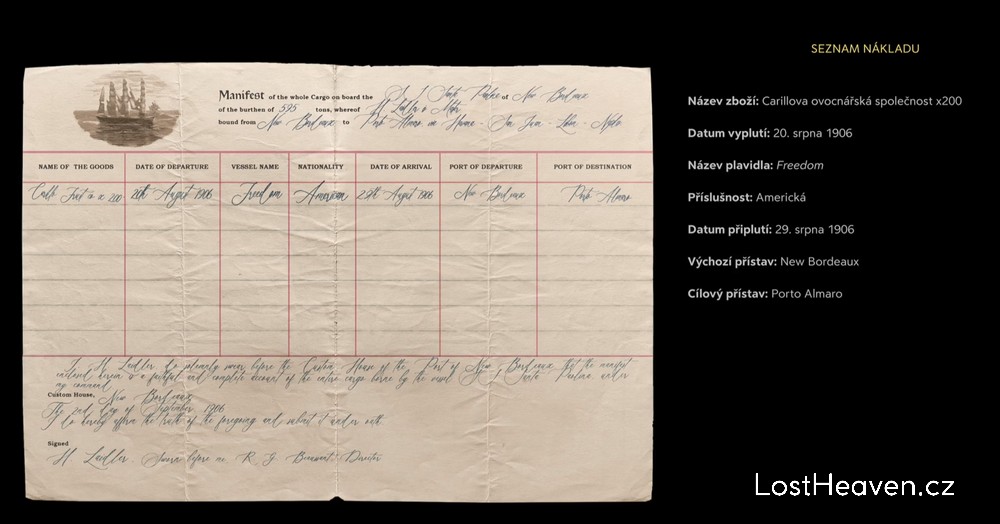 SEZNAM NÁKLADU
Manifest of the whole Cargo on board the of New Bordeaux
of the burthen of 595 tons, whereof H Laidler
bound from New Bordeaux to Porto Almaro
NAME OF THE GOODS DATE OF DEPARTURE VESSEL NAME NATIONALITY DATE OF ARRIVAL PORT OF DEPARTURE PORT OF DESTINATION
x 200 20th August 1906 Freedom American 29th August 1906 New Bordeaux Porto Almaro
I, H Laidler do solemnly swear before the Custom House of the Port of New Bordeaux that the manifest
enclosed herein is a faithful and complete account of the entire cargo borne by the vessel under
my command
Custom House, New Bordeaux
The 2nd day of September 1906
I do hereby affirm the truth of the foregoing and submit it under oath
Signed
H Laidler Sworn before me R G Beaumont Director
Název zboží: Carillova ovocnářská společnost x200
Datum vyplutí: 20. srpna 1906
Název plavidla: Freedom
Příslušnost: Americká
Datum připlutí: 29. srpna 1906
Výchozí přístav: New Bordeaux
Cílový přístav: Porto Almaro
LostHeaven.cz